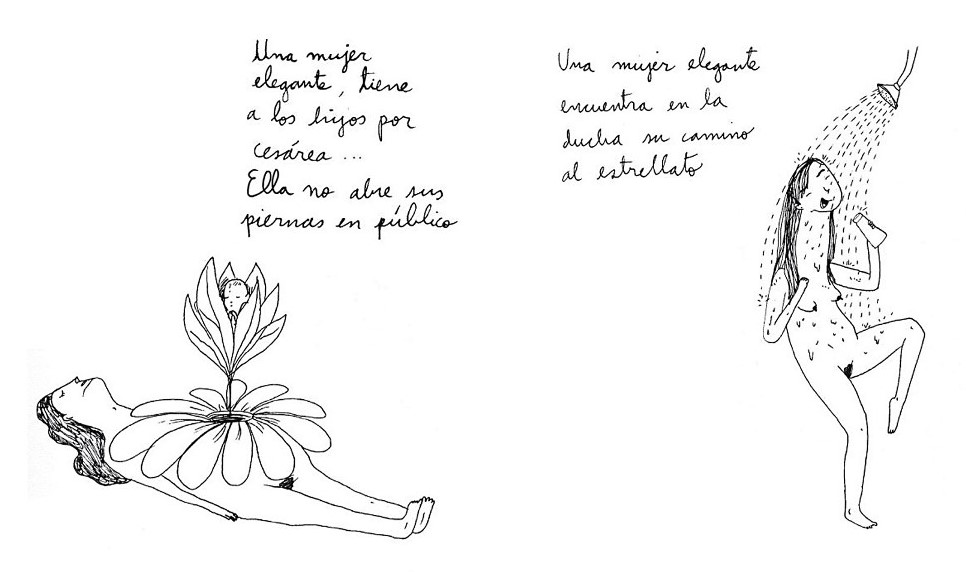 Una mujer
elegante, tiene
a los hijos por
cesárea ...
Ella no abre sus
piernas en público
Una mujer elegante
encuentra en la
ducha su camino
al estrellato